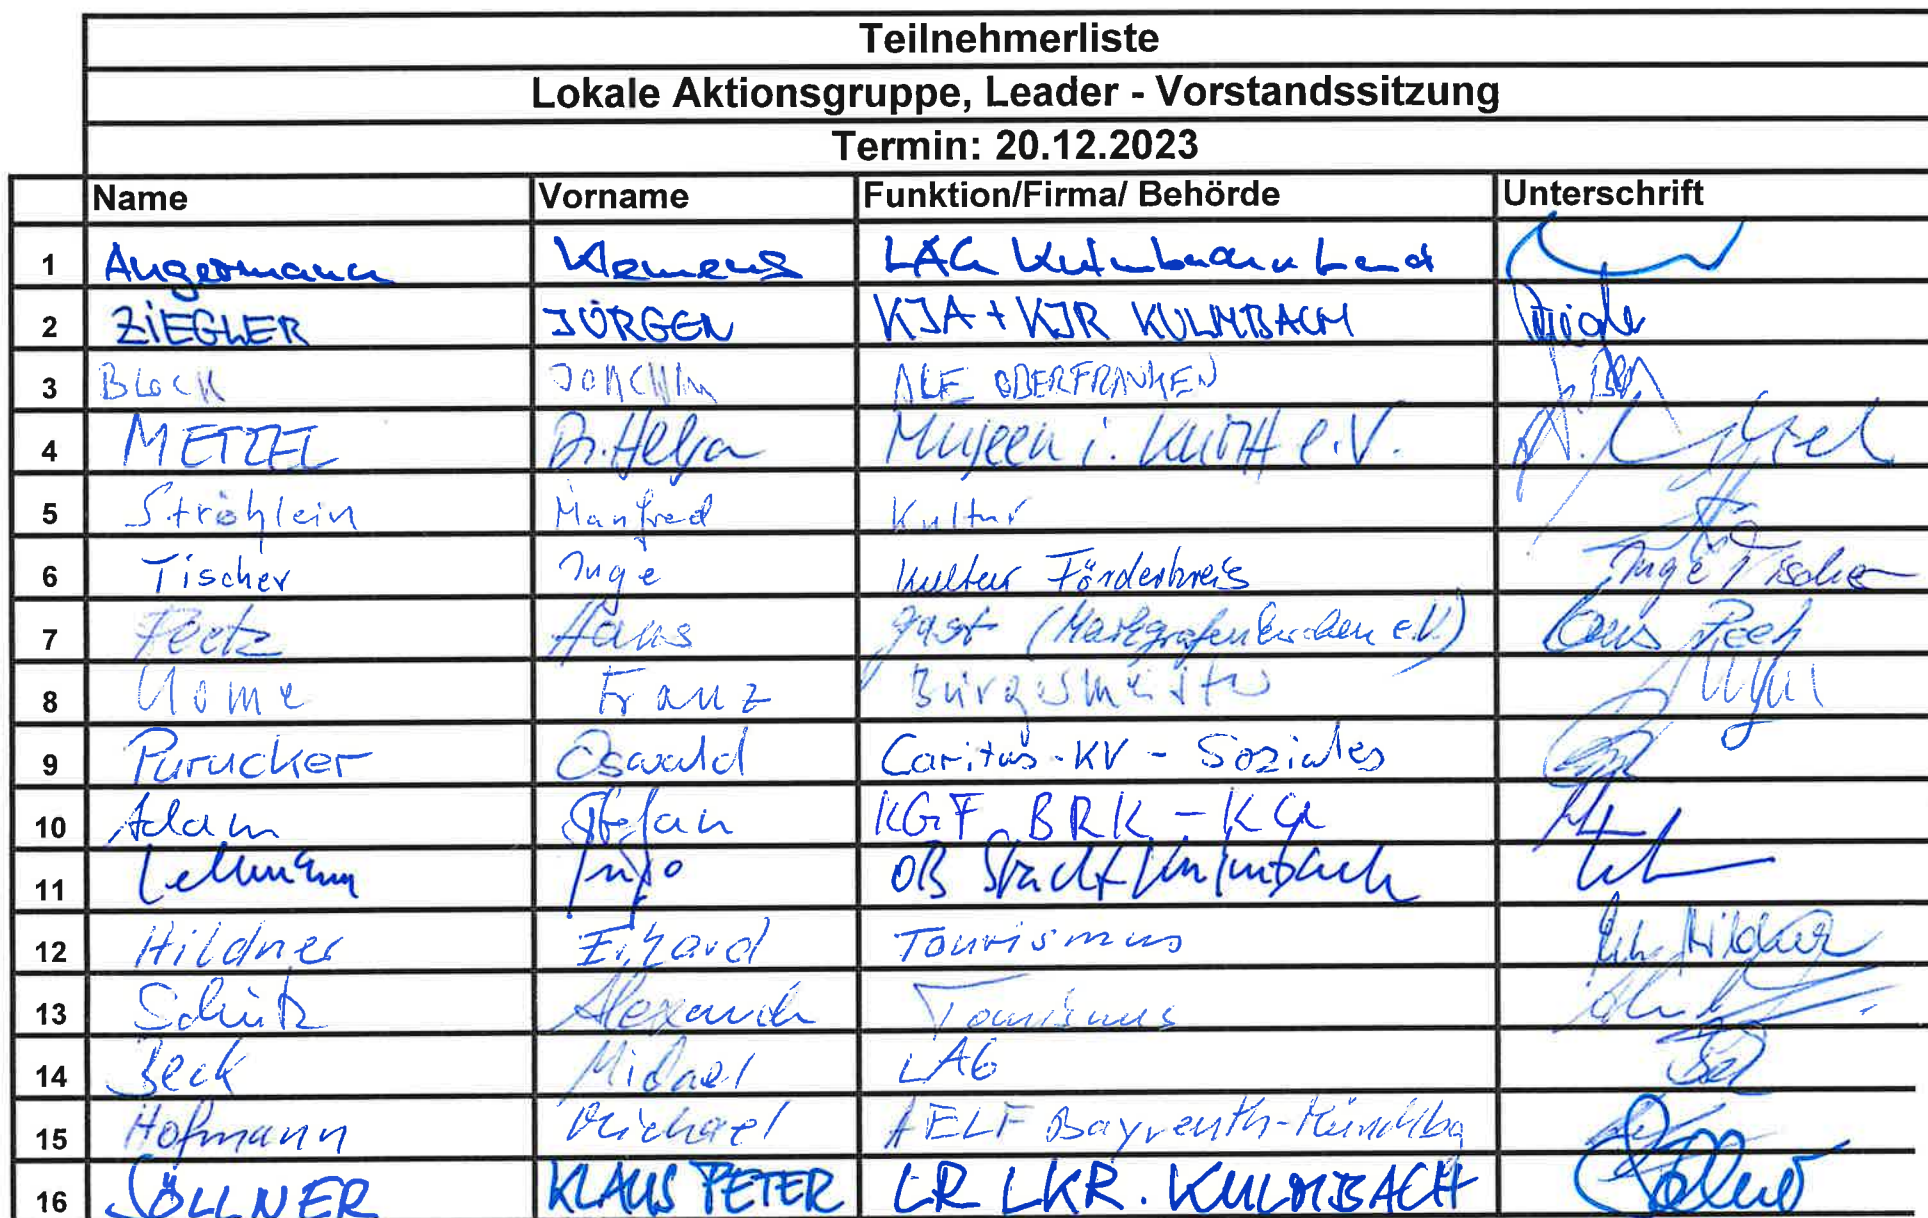 Teilnehmerliste
Lokale Aktionsgruppe, Leader - Vorstandssitzung
Termin: 20.12.2023
Name Vorname Funktion/Firma/ Behörde Unterschrift
1 Angermann Klemens LAG Kulmbacher Land
2 ZIEGLER JÜRGEN KJA + KJR KULMBACH Ziegler
3 Block JOACHIM ALE OBERFRANKEN
4 METZEL Dr. Helga Museen i. e.V.
5 Ströhlein Manfred Kultur
6 Tischer Inge Kultur Förderkreis Inge Tischer
7 Peetz Hans Gast (Markgrafenkirchen e.V.) Hans Peetz
8 Uome Franz Bürgermeister
9 Purucker Oswald Caritas-KV - Soziales
10 Adam Stefan KGF BRK - KU
11 Lehmann Ingo OB Stadt Kulmbach
12 Hildner Erhard Tourismus Hildner
13 Schütz Alexander Tourismus
14 Beck Michael LAG
15 Hofmann Michael AELF Bayreuth-Münchbg
16 SÖLLNER KLAUS PETER LR LKR. KULMBACH Söllner